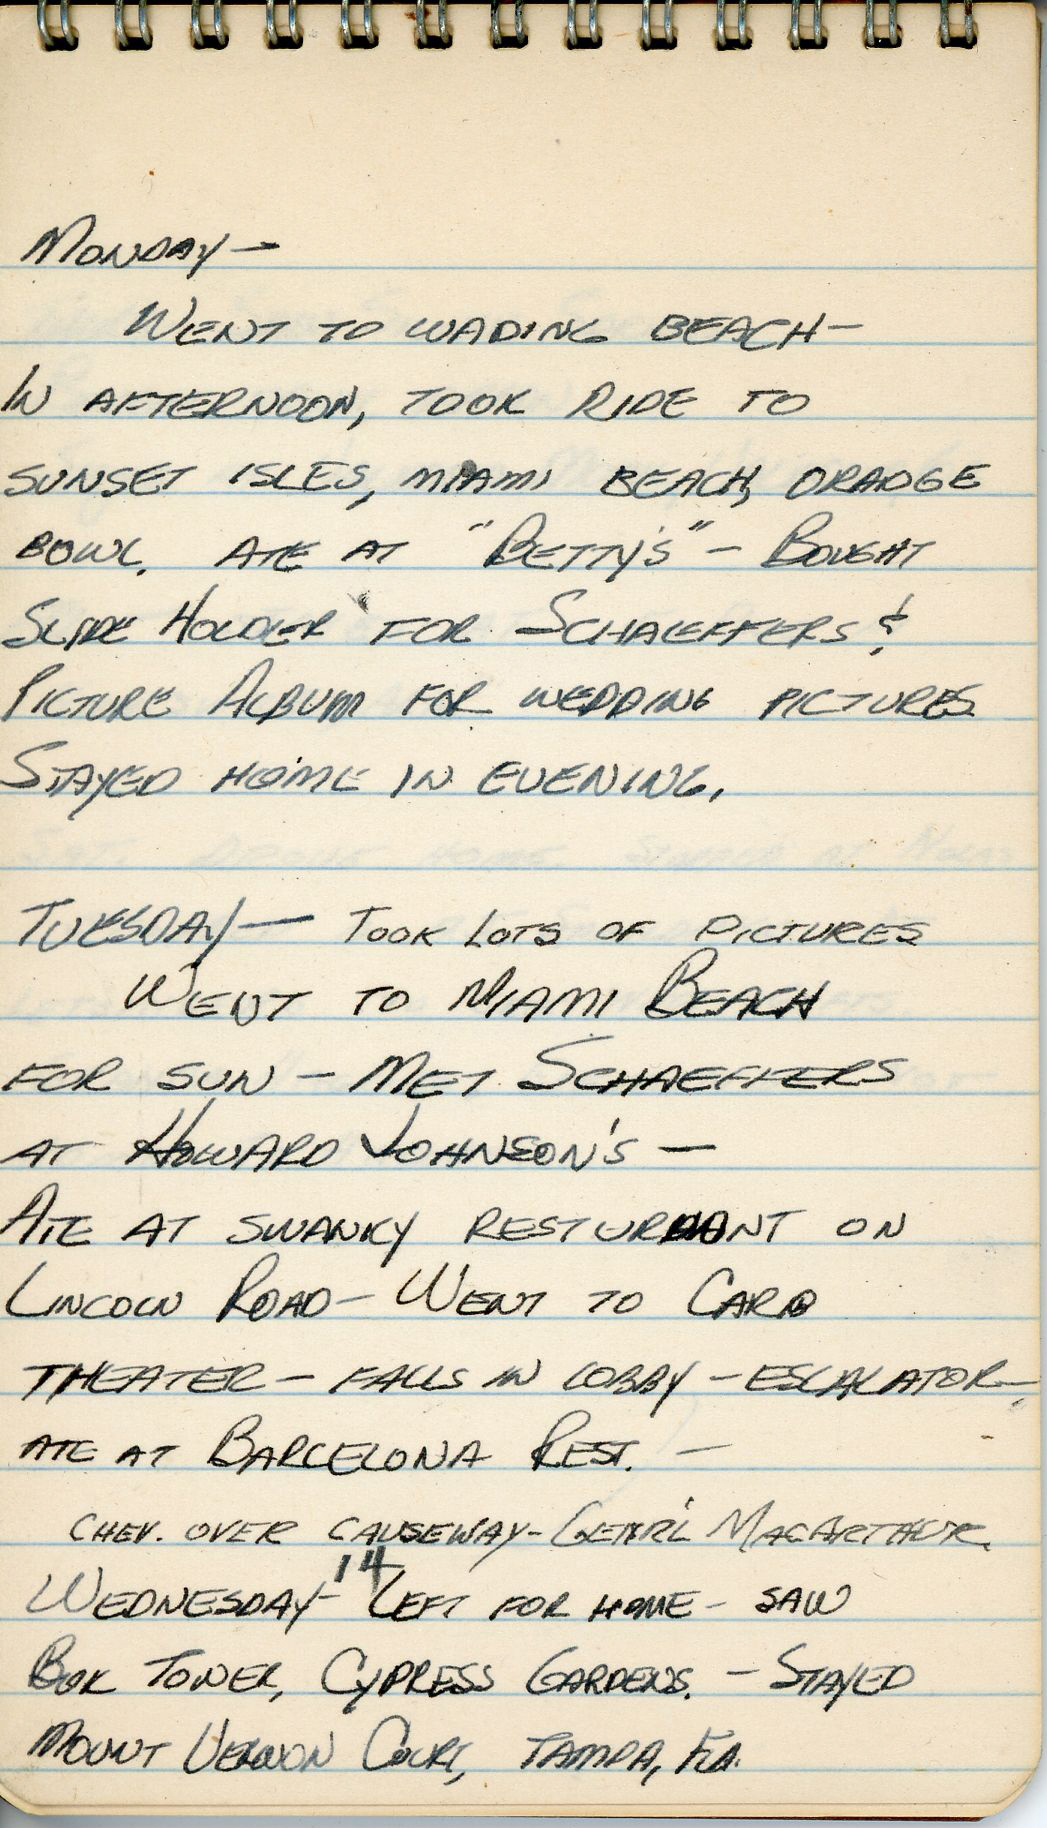 Monday —
Went to wading beach —
In afternoon, took ride to
Sunset Isles, Miami Beach, Orange
Bowl. Ate at "Betty's" — Bought
Slide Holder for Schaeffers &
Picture Album for wedding pictures
Stayed home in evening.
Tuesday — Took lots of pictures
Went to Miami Beach
for sun — Met Schaeffers
at Howard Johnson's —
Ate at swanky resturant on
Lincoln Road — Went to Carib
Theater — Falls in lobby — escalator —
ate at Barcelona Rest. —
Chev. over causeway — Gen'rl MacArthur.
14
Wednesday — Left for home — saw
Bok Tower, Cypress Gardens. — Stayed
Mount Vernon Court, Tampa, Fla.